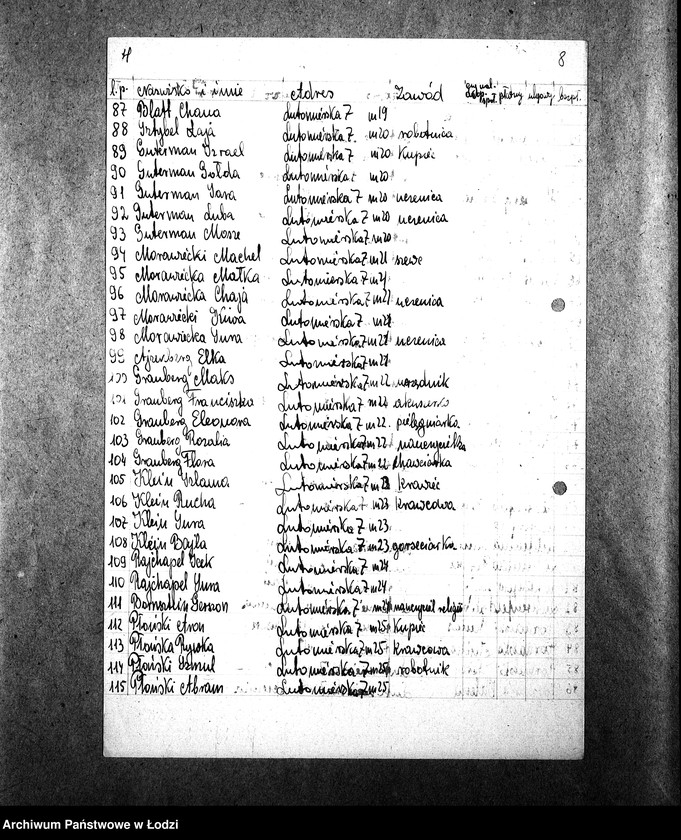 4 8
l.p. Nazwisko i imię Adres Zawód płatny ulgowy bezpł.
87 Blatt Chana Lutomierska 7 m19
88 Grybel Łaja Lutomierska 7 m20 robotnica
89 Guterman Izrael Lutomierska 7 m20 Kupiec
90 Guterman Gołda Lutomierska m20
91 Guterman Sara Lutomierska 7 m20 uczenica
92 Guterman Luba Lutomierska 7 m20 uczenica
93 Guterman Mosze Lutomierska 7 m20
94 Morawiecki Machel Lutomierska 7 m21
95 Morawiecka Małka Lutomierska 7 m21
96 Morawiecka Chaja Lutomierska 7 m21 uczenica
97 Morawiecki Lutomierska 7 m21
98 Morawiecka Sura Lutomierska 7 m21 uczenica
99 Ajzenberg Elka Lutomierska 7 m21
100 Granberg Maks Lutomierska 7 m22 urzędnik
101 Granberg Franciszka Lutomierska 7 m22
102 Granberg Eleonora Lutomierska 7 m22. pielęgniarka
103 Granberg Rozalia Lutomierska 7 m22 nauczycielka
104 Granberg Flora Lutomierska 7 m22
105 Klein Szlama Lutomierska 7 m23 krawiec
106 Klein Rucha Lutomierska 7 m23 krawcowa
107 Klein Sura Lutomierska 7 m23
108 Klein Bajla Lutomierska 7 m23 gorseciarka
109 Rajchapel Icek Lutomierska 7 m24
110 Rajchapel Sura Lutomierska 7 m24
111 Gerszon Lutomierska 7 m24 nauczyciel religii
112 Płoński Aron Lutomierska 7 m25 Kupiec
113 Płońska Rywka Lutomierska 7 m25 krawcowa
114 Płoński Szmul Lutomierska 7 m25 robotnik
115 Płoński Abram Lutomierska 7 m25
Archiwum Państwowe w Łodzi